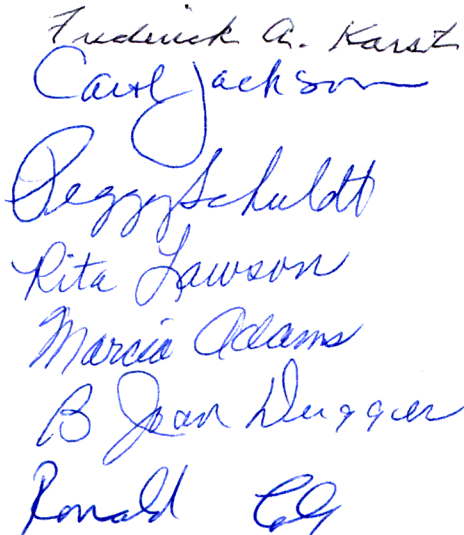 Frederick A. Karst
Carol Jackson
Peggy Schuldt
Rita Lawson
Marcia Adams
B Joan Dugger
Ronald